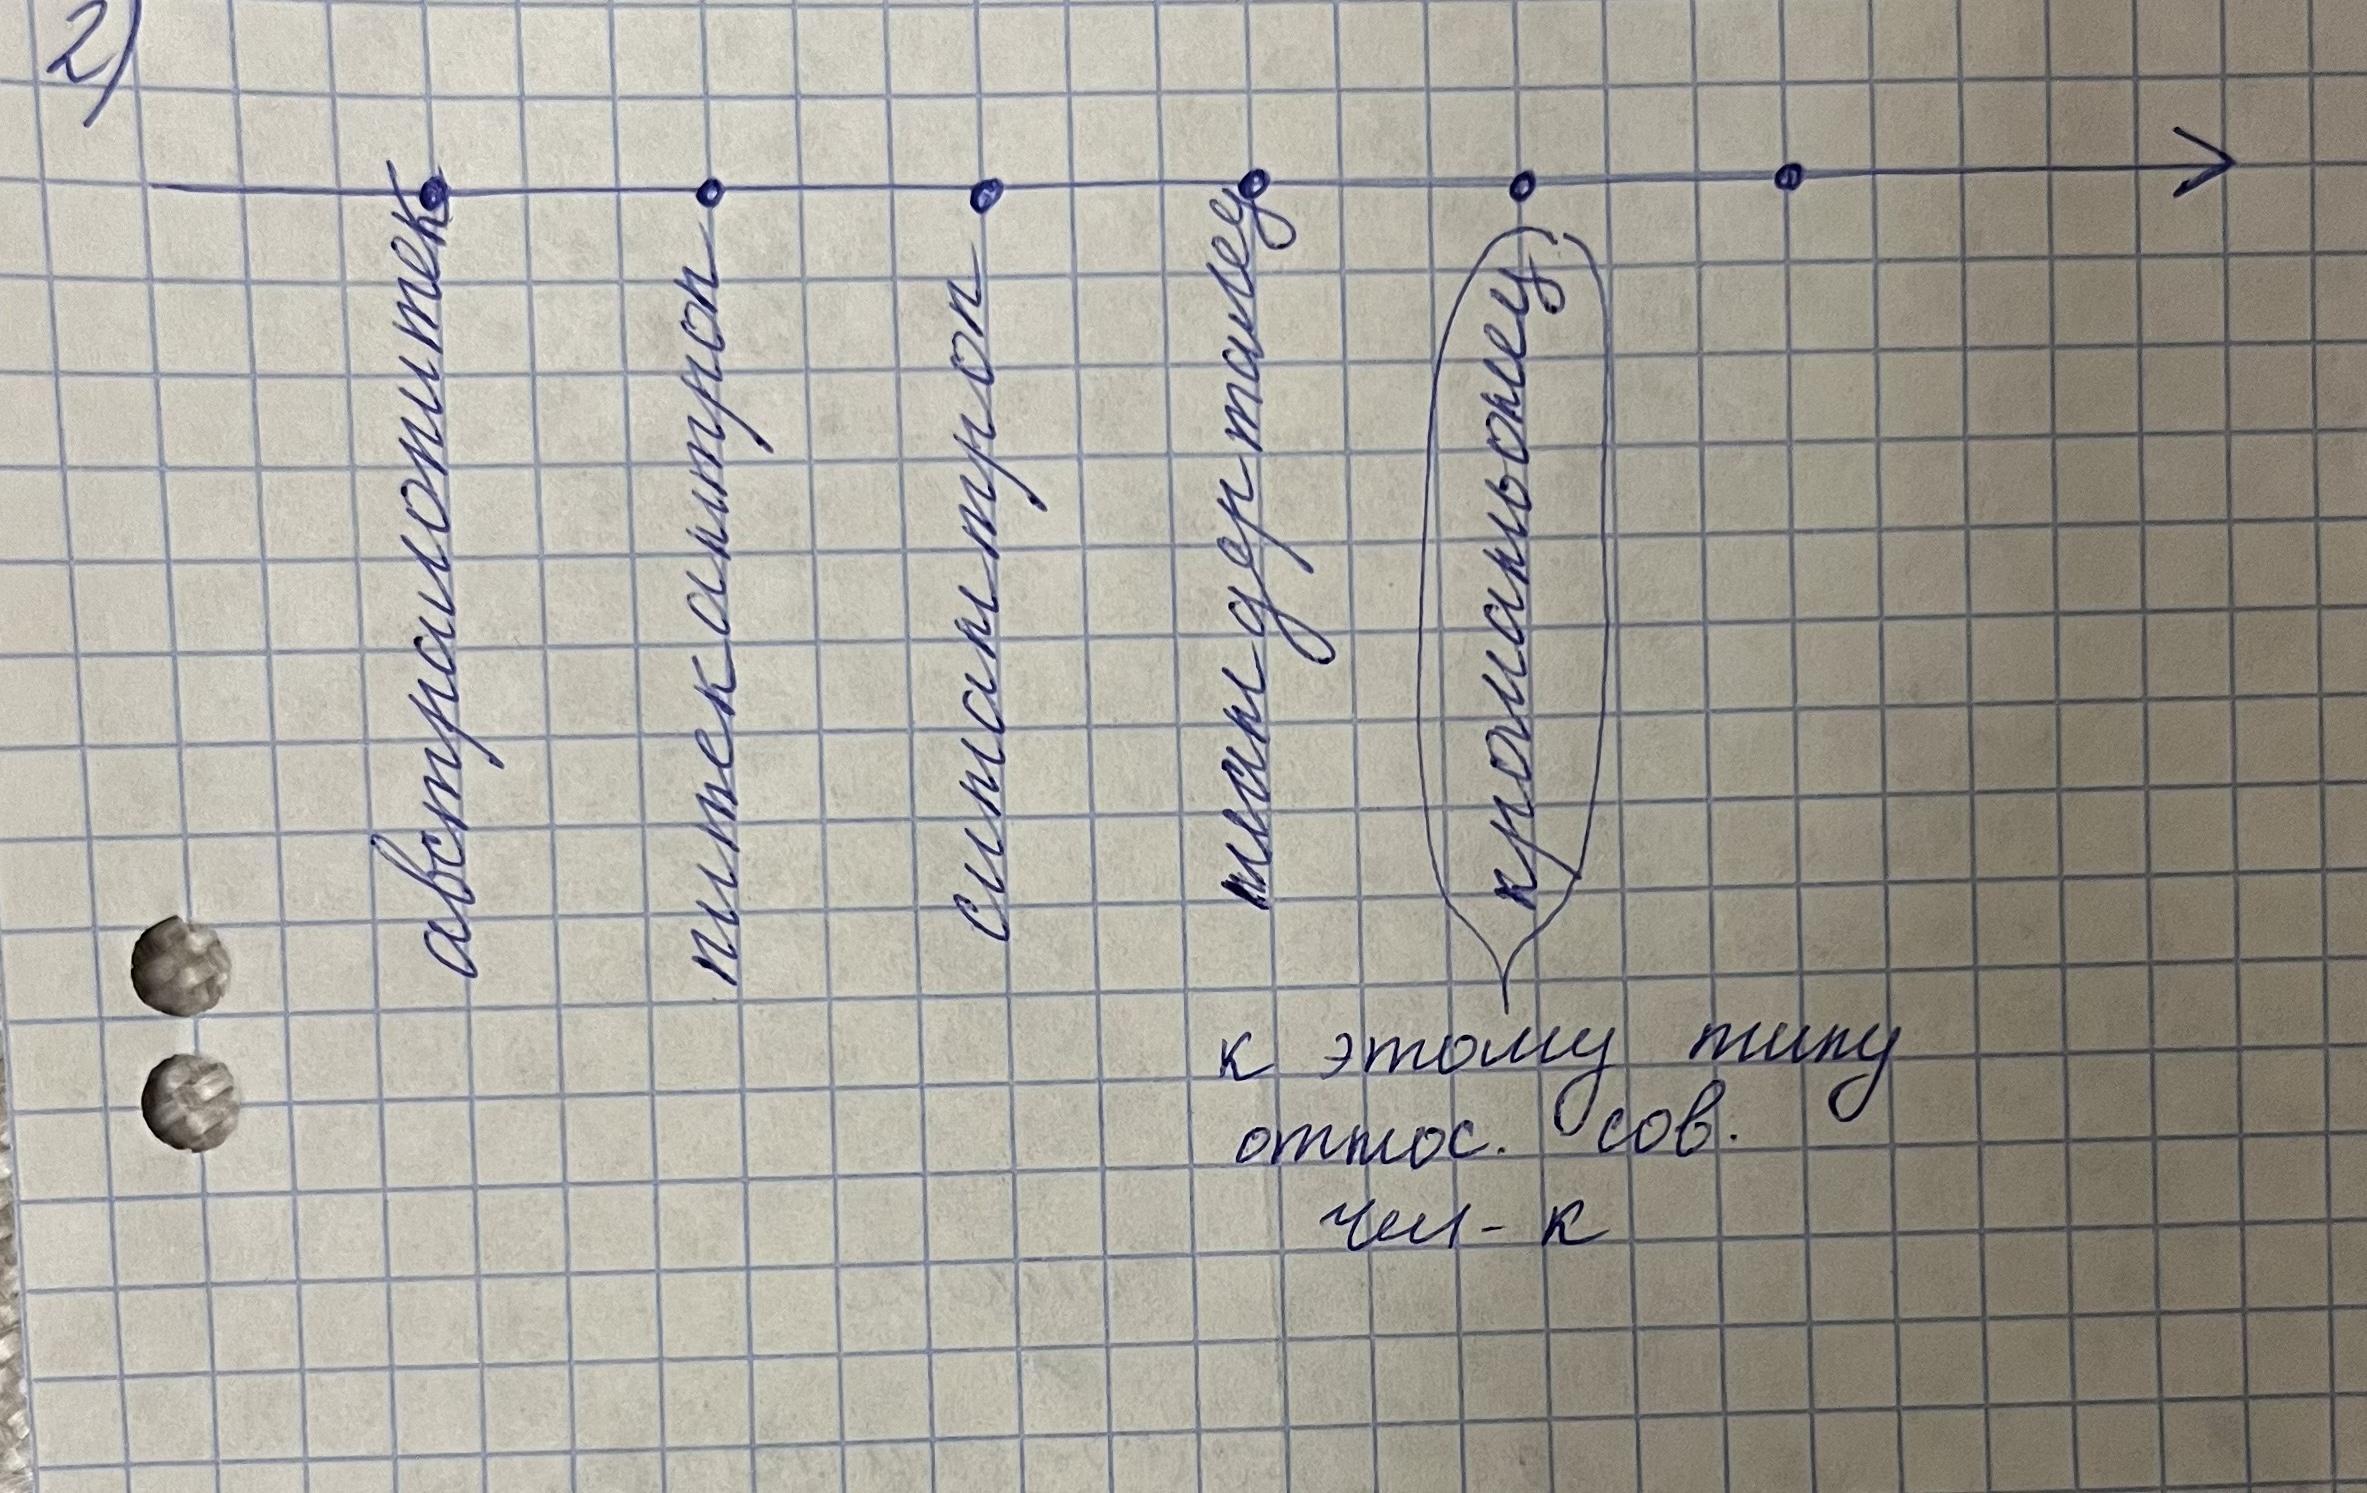 2)
австралопитек
питекантроп
синантроп
неандерталец
кроманьонец
к этому типу
относ. сов.
чел-к